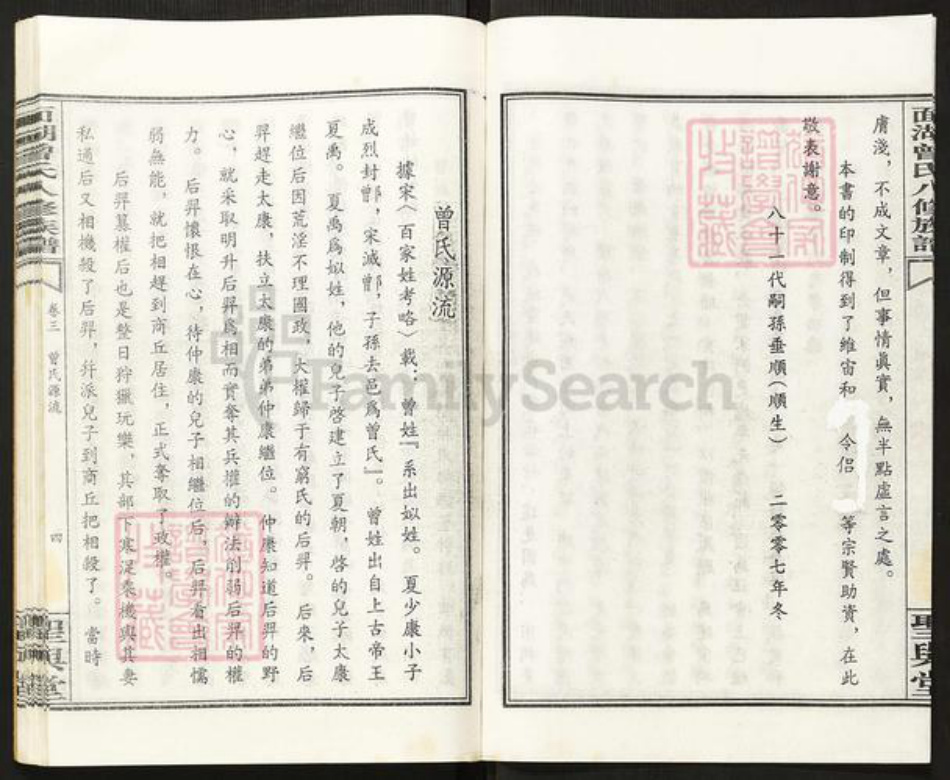 膚淺，不成文章，但事情眞實，無半點虛言之處。
本書的印制得到了維宙和 令侣 等宗賢助資，在此
敬表謝意。
八十一代嗣孫垂順（順生） 二零零七年冬
面湖曾氏八修族譜
聖與堂
曾氏源流
據宋《百家姓考略》載：曾姓『系出姒姓。夏少康小子
成烈封鄫，宋滅鄫，子孫去邑爲曾氏』。曾姓出自上古帝王
夏禹。夏禹爲姒姓，他的兒子啓建立了夏朝，啓的兒子太康
繼位后因荒淫不理國政，大權歸于有窮氏的后羿。后來，后
羿趕走太康，扶立太康的弟弟仲康繼位。仲康知道后羿的野
心，就采取明升后羿爲相而實奪其兵權的辦法削弱后羿的權
力。后羿懷恨在心，待仲康的兒子相繼位后，后羿看出相懦
弱無能，就把相趕到商丘居住，正式奪取了政權。
后羿篡權后也是整日狩獵玩樂，其部下寒浞乘機與其妻
私通后又相機殺了后羿，并派兒子到商丘把相殺了。當時
卷三 曾氏源流
四
FamilySearch